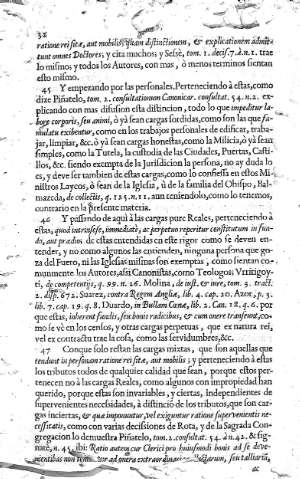 32
ratione rei sitæ, aut mobilis; quam distinctionem, & explicationem admittunt
omnes Doctores, y cita muchos y Sesse, tom. 1. decis. 7. à n. 1. trae
lo mismo; y todos los Autores, con mas, ò menos terminos sientan
esto mismo.
45 Y empezando por las personales. Perteneciendo à estas, como
dize Piñatelo, tom. 2. consultationum Canonicar. consultat. 54. n. 2. explicando
con mas difusion esta distincion, todo lo que impeditur labore
corporis, seu animi, ò yà sean cargas sordidas, como son las que
exibentur, como en los trabajos personales de edificar, trabajar,
limpiar, &c. ò yà sean cargas honestas, como la Milicia, ò yà sean
simples, como la Tutela, la custodia de las Ciudades, Puertas, Castillos,
&c. siendo excempta de la Jurisdicion la persona, no ay duda lo
es, y deve ser tambien de estas cargas, como lo confiessa en estos Ministros
Laycos, ò sean de la Iglesia, ù de la familia del Obispo,
de collectis, q. 125. n. 21. aun teniendolo, como lo tenemos,
contrario en la presente materia.
46 Y passando de aqui à las cargas pure Reales, perteneciendo à
estas, quod intrinsece, immediatè, ac perpetuo reperitur constitutum in fundo,
aut prædio: de estas entendidas en este rigor como se deven entender,
y no como algunos las estienden, ninguna persona que goza
del Fuero, ni las Iglesias mismas son exemptas, como sientan comunmente
los Autores, assi Canonistas, como Teologos;
de competentijs, q. 99. n. 26. Molina, de inst. & iure, tom. 3. tract.
2. disp. 672. Suarez, contra Regem Angliæ, lib. 4. cap. 20. Azor, p. 3.
lib. 7. cap. 19. q. 8. Duardo, in Bullam Cenæ, lib. 2. Can. 18. q. 6. por
que estas, inherent fundis, seu bonis radicibus, & cum onere transeunt, como
se vè en los censos, y otras cargas perpetuas, que ex natura rei,
vel ex contractu trae la cosa, como las servidumbres, &c.
47 Conque solo restan las cargas mixtas, que son aquellas que
tendunt in personam ratione rei sitæ, aut mobilis; y perteneciendo à estas
los tributos todos de qualquier calidad que sean, porque estos pertenecen
no à las cargas Reales, como algunos con impropiedad han
querido, porque estas son invariables, y ciertas, independentes de
supervenientes necessidades, à distincion de los tributos, que son cargas
inciertas, & quæ imponuntur, vel exiguntur ratione supervenientis necessitatis,
como con varias decisiones de Rota, y de la Sagrada Congregacion
lo demuestra Piñatelo, tom. 2. consultat. 54. à n. 42. &
n. 45. ibi: Ratio autem cur Clerici pro huiusmodi bonis ad
non tenentur ad onera extraordinaria